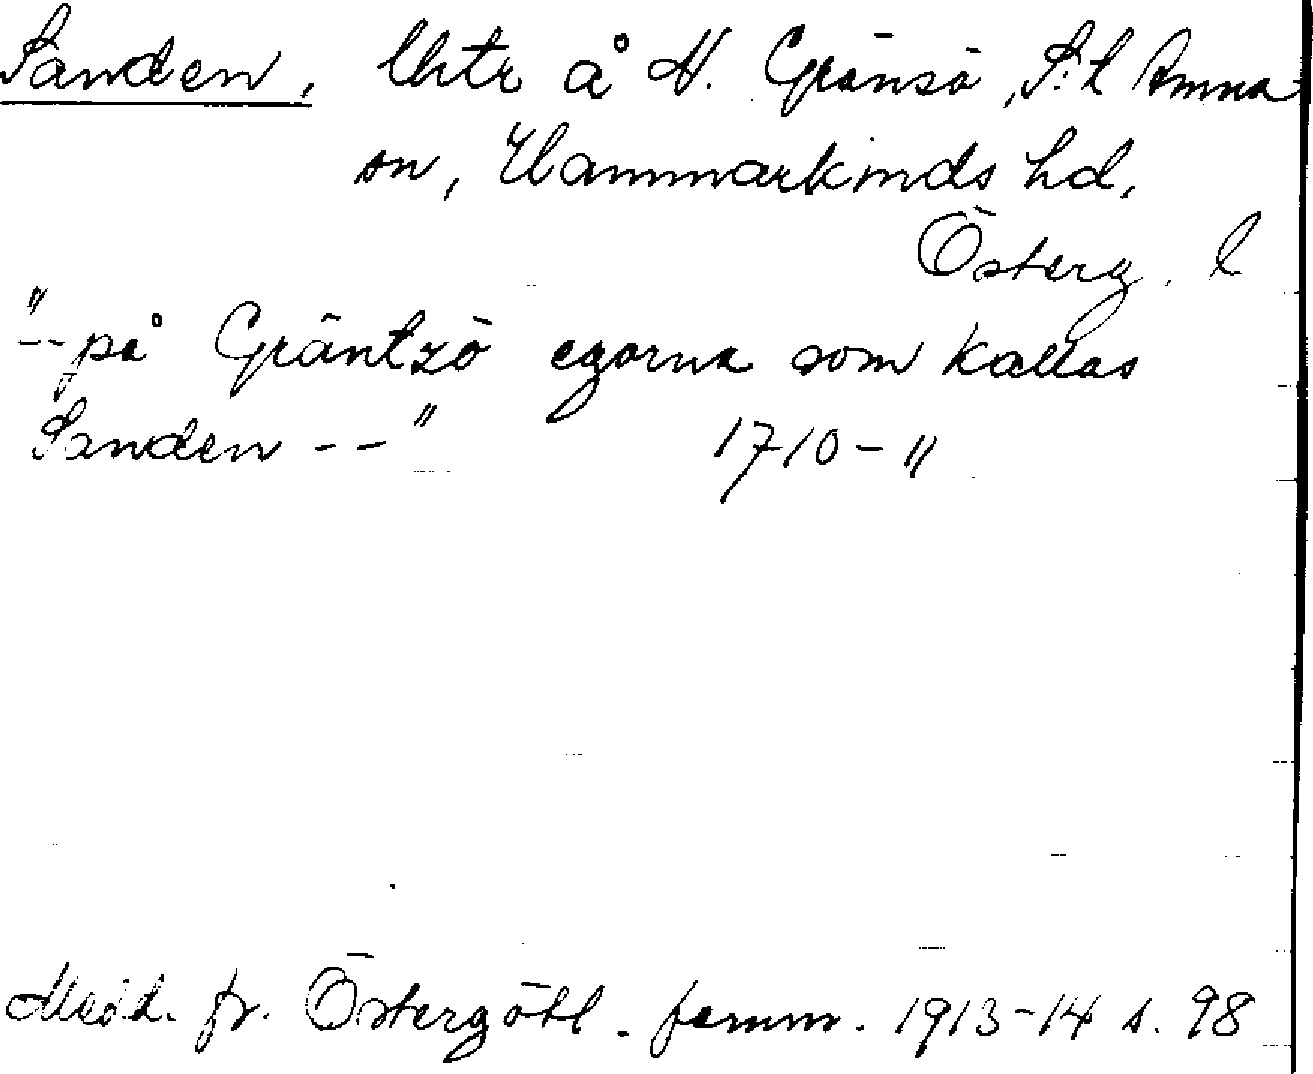 Sanden, lhtr å N. Gränsö, S:t Anna
sn, Hammarkinds hd,
Österg. l
"--på Gräntzö egorna som kallas
Sanden--" 1710-11
Medd. fr. Östergötl. fornm. 1913-14 s. 98